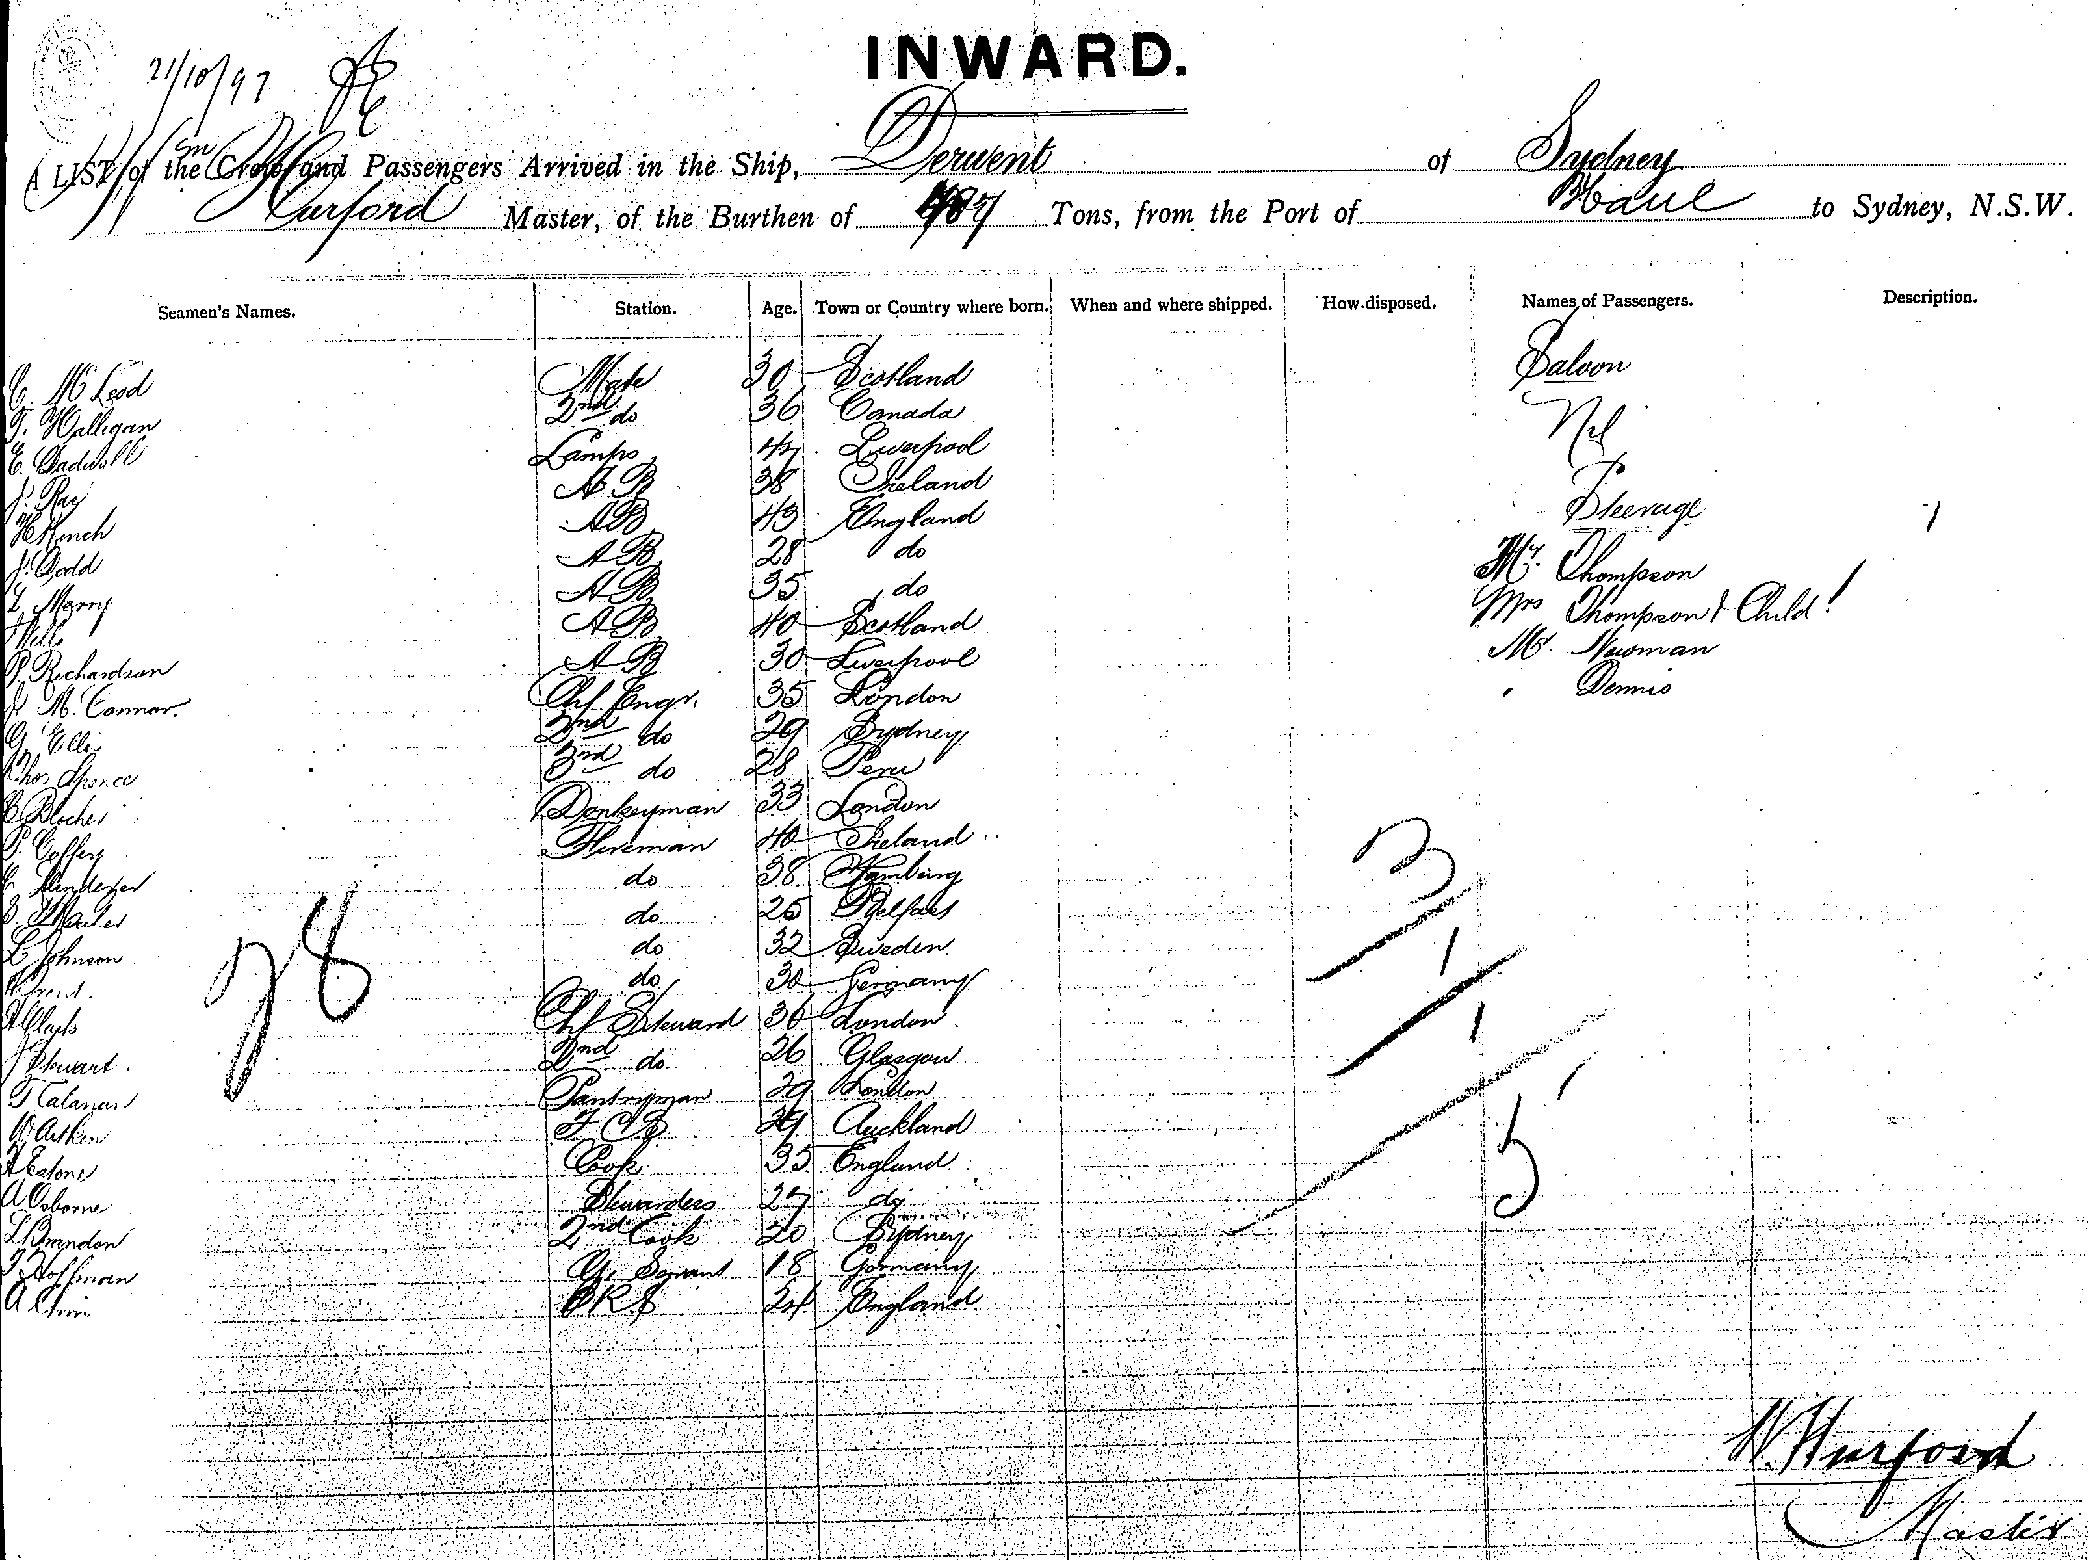 INWARD.
21/10/97
A LIST of the Crew and Passengers Arrived in the Ship, Derwent of Sydney
Hurford Master, of the Burthen of Tons, from the Port of to Sydney, N.S.W.
Seamen's Names. Station. Age. Town or Country where born. When and where shipped. How disposed. Names of Passengers. Description.
Saloon
C. McLeod Mate 30 Scotland
T. Halligan 2nd do 36 Canada Nil
E. Lamps 47 Liverpool
J. Ray AB 38 Ireland
Steerage
AB 43 England
J. Dodd AB 28 do
Mr. Thompson
Merry AB 35 do
Mrs Thompson & Child 1
Wills AB 40 Scotland
Mr. Newman
P. Richardson AB 30 Liverpool
Dennis
J. M. Connor. Chf Engr. 35 London
G. Ellis 2nd do 29 Sydney
Thos Spence 3rd do 28 Peru
Donkeyman 33 London
P. Coffey Fireman 40 Ireland
3
do 38 Hamburg
do 25 Belfast
28
L Johnson do 32 Sweden
1
do 30 Germany
Chf Steward 36 London
1
J Stewart. 2nd do 26 Glasgow
Pantryman 29 London
W Aitken F C S 29 Auckland
5
Cook 35 England
A Osborne Stewardess 27 do
L Brandon 2nd Cook 20 Sydney
Hoffman G. Servant 18 Germany
24 England
W. Hurford
Master